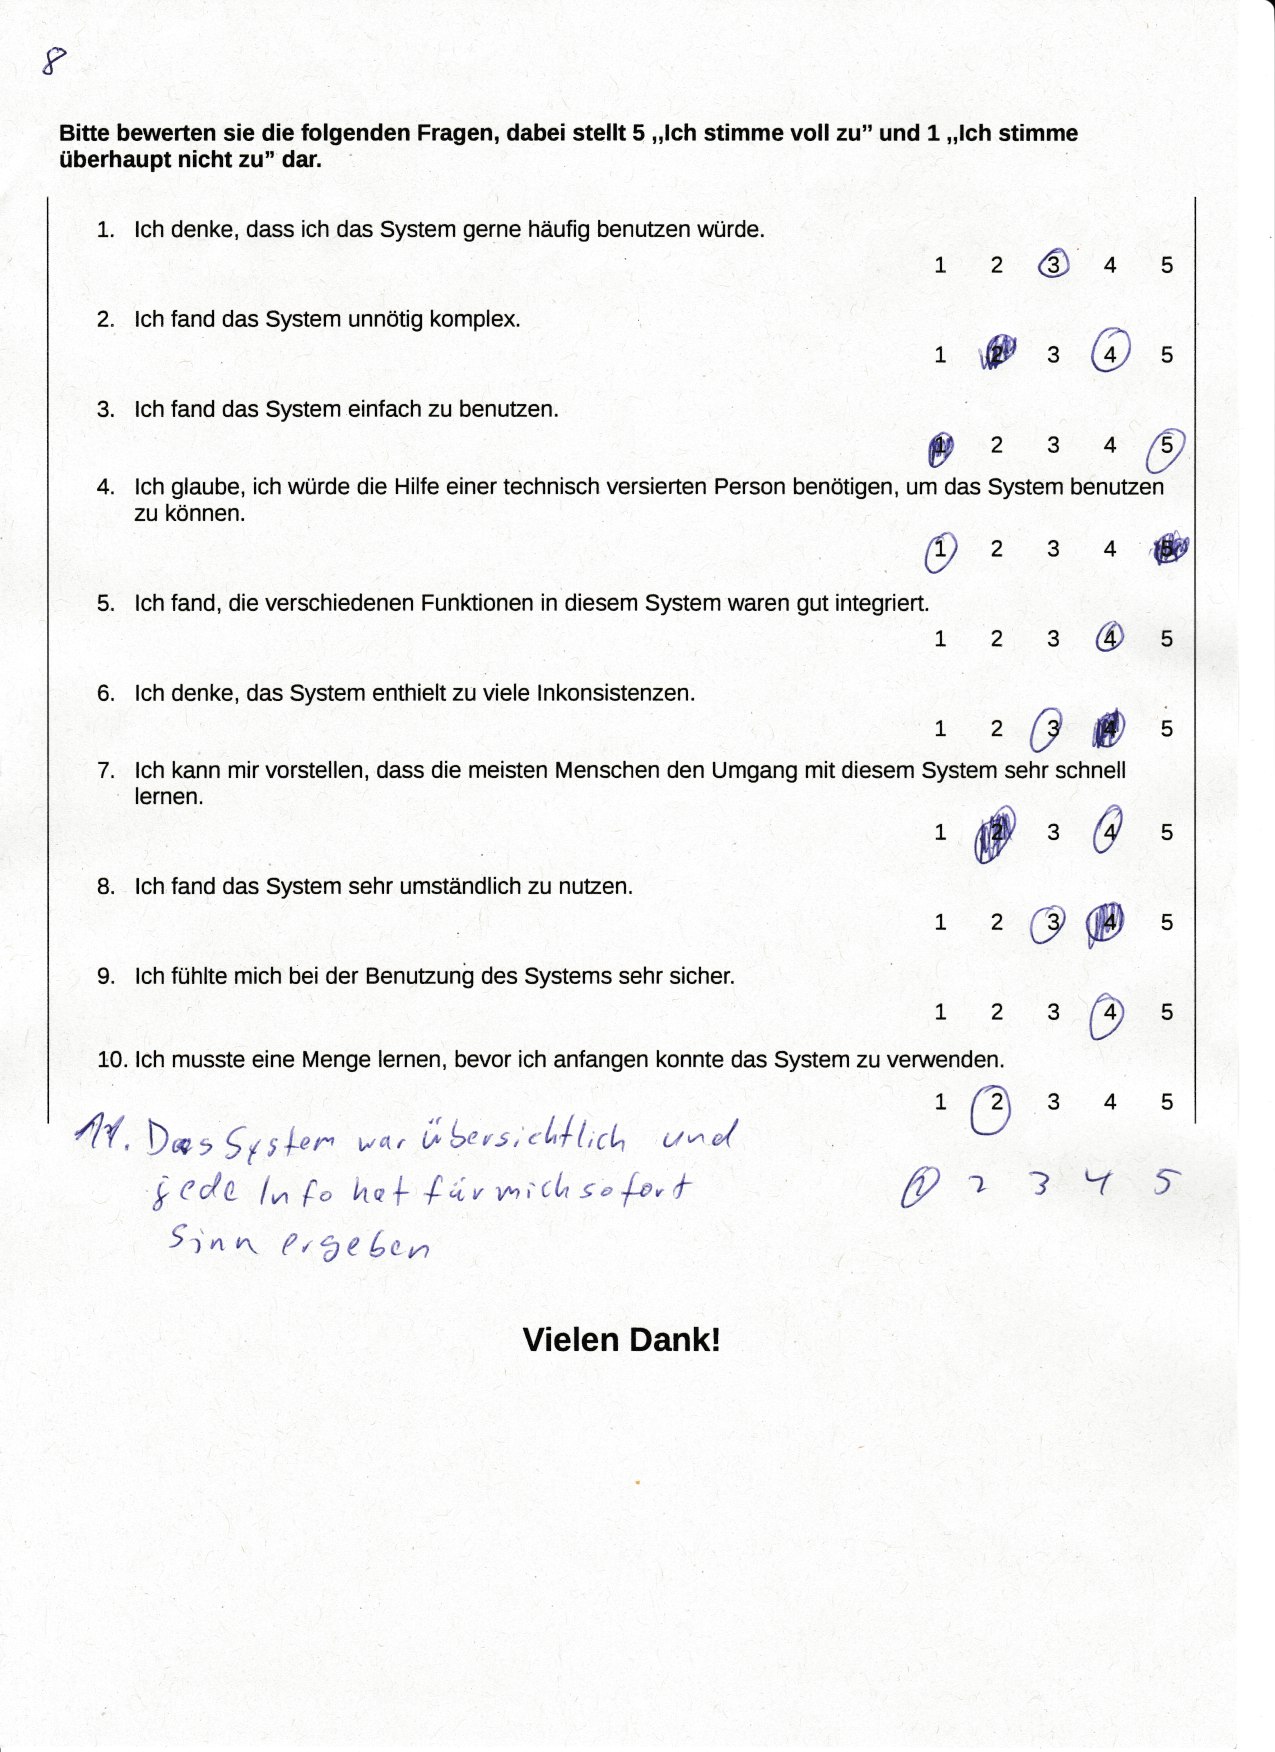 8
Bitte bewerten sie die folgenden Fragen, dabei stellt 5 ,,Ich stimme voll zu” und 1 ,,Ich stimme
überhaupt nicht zu” dar.
1. Ich denke, dass ich das System gerne häufig benutzen würde.
1 2 3 4 5
2. Ich fand das System unnötig komplex.
1 2 3 4 5
3. Ich fand das System einfach zu benutzen.
1 2 3 4 5
4. Ich glaube, ich würde die Hilfe einer technisch versierten Person benötigen, um das System benutzen
zu können.
1 2 3 4 5
5. Ich fand, die verschiedenen Funktionen in diesem System waren gut integriert.
1 2 3 4 5
6. Ich denke, das System enthielt zu viele Inkonsistenzen.
1 2 3 4 5
7. Ich kann mir vorstellen, dass die meisten Menschen den Umgang mit diesem System sehr schnell
lernen.
1 2 3 4 5
8. Ich fand das System sehr umständlich zu nutzen.
1 2 3 4 5
9. Ich fühlte mich bei der Benutzung des Systems sehr sicher.
1 2 3 4 5
10. Ich musste eine Menge lernen, bevor ich anfangen konnte das System zu verwenden.
1 2 3 4 5
11. Das System war übersichtlich und
jede Info hat für mich sofort
1 2 3 4 5
Sinn ergeben
Vielen Dank!